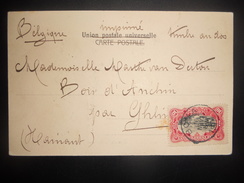 Belgique imprimé timbre au dos
Union postale universelle
CARTE POSTALE
Mademoiselle Marthe van
Bois d'
par Ghlin
(Hainaut)